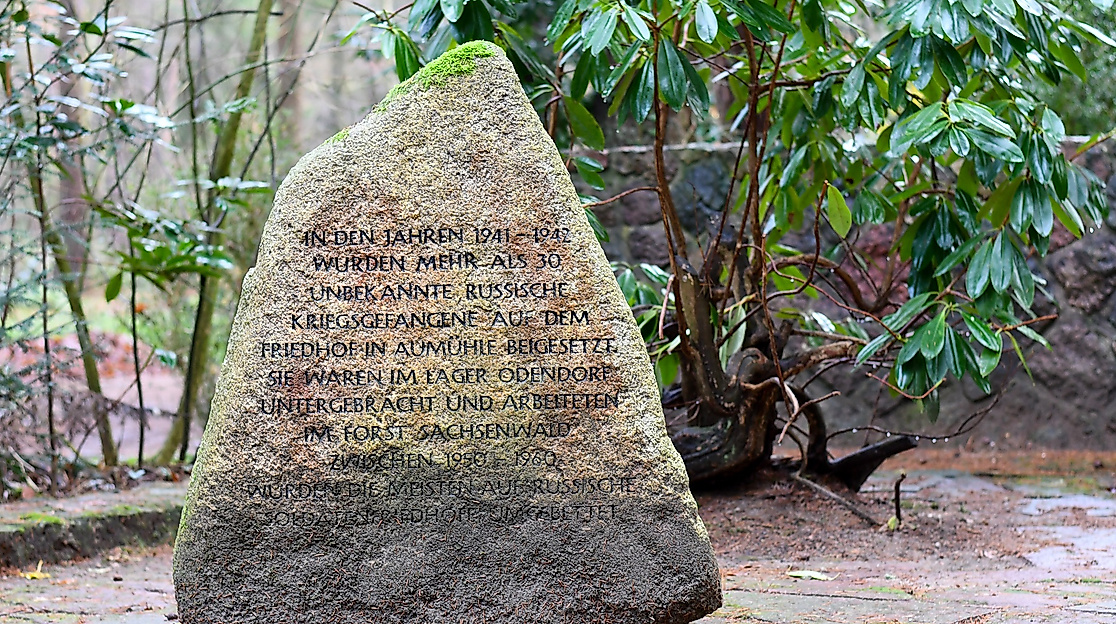 IN DEN JAHREN 1941 – 1942
WURDEN MEHR ALS 30
UNBEKANNTE RUSSISCHE
KRIEGSGEFANGENE AUF DEM
FRIEDHOF IN AUMÜHLE BEIGESETZT.
SIE WAREN IM LAGER ODENDORF
UNTERGEBRACHT UND ARBEITETEN
IM FORST SACHSENWALD
ZWISCHEN 1950 – 1960
WURDEN DIE MEISTEN AUF RUSSISCHE
SOLDATENFRIEDHÖFE UMGEBETTET